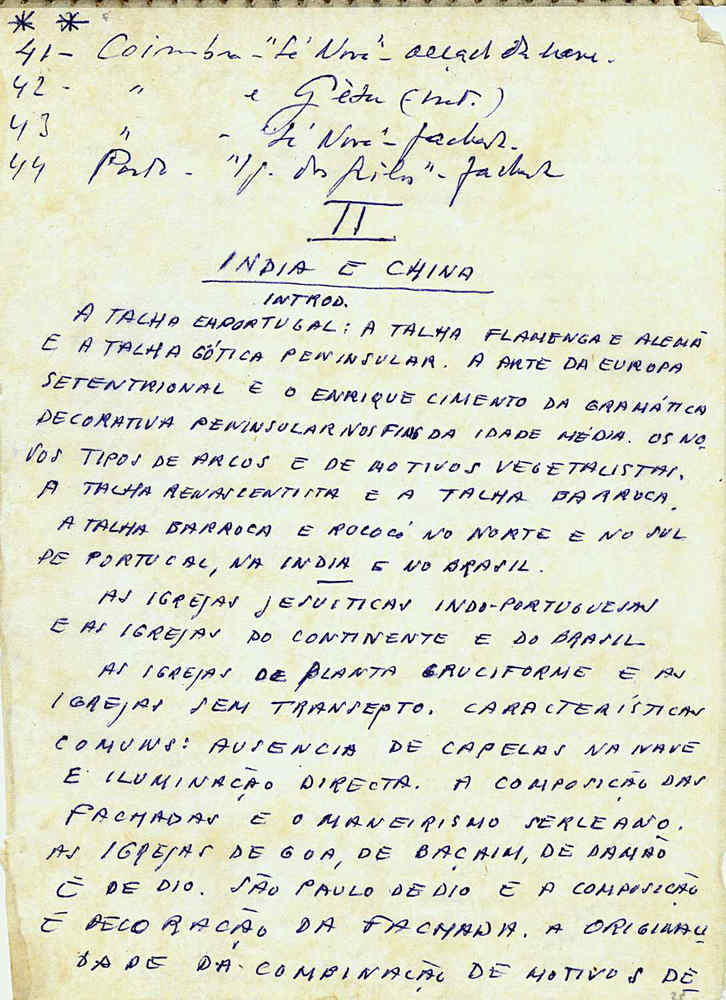 * *
41 - Coimbra - "Sé Nova" - da nave.
42 - " e Gèsu (int.)
43 " - "Sé Nova" - fachada.
44 Porto - "Ig. dos Grilos" - fachada
II
INDIA E CHINA
INTROD.
A TALHA EM PORTUGAL: A TALHA FLAMENGA E ALEMÃ
E A TALHA GÓTICA PENINSULAR. A ARTE DA EUROPA
SETENTRIONAL E O ENRIQUECIMENTO DA GRAMÁTICA
DECORATIVA PENINSULAR NOS FINS DA IDADE MÉDIA. OS NO-
VOS TIPOS DE ARCOS E DE MOTIVOS VEGETALISTAS.
A TALHA RENASCENTISTA E A TALHA BARROCA.
A TALHA BARROCA E ROCOCÓ NO NORTE E NO SUL
DE PORTUGAL, NA INDIA E NO BRASIL.
AS IGREJAS JESUÍTICAS INDO-PORTUGUESAS
E AS IGREJAS DO CONTINENTE E DO BRASIL
AS IGREJAS DE PLANTA CRUCIFORME E AS
IGREJAS SEM TRANSEPTO. CARACTERÍSTICAS
COMUNS: AUSENCIA DE CAPELAS NA NAVE
E ILUMINAÇÃO DIRECTA. A COMPOSIÇÃO DAS
FACHADAS E O MANEIRISMO SERLEANO.
AS IGREJAS DE GOA, DE BAÇAIM, DE DAMÃO
E DE DIO. SÃO PAULO DE DIO E A COMPOSIÇÃO
E DECORAÇÃO DA FACHADA. A ORIGINALI
DADE DA COMBINAÇÃO DE MOTIVOS DE
25